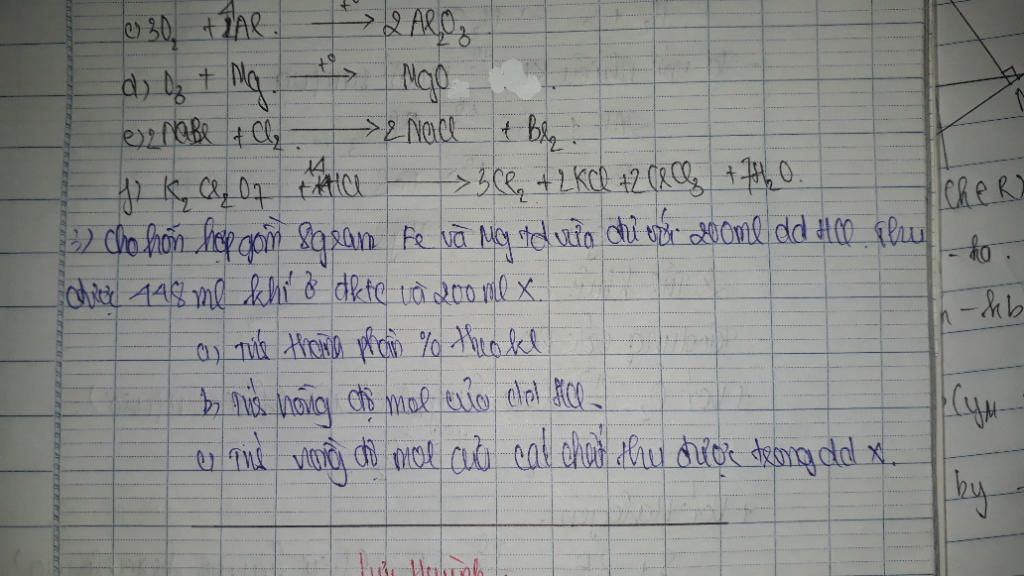 c) 3O₂ + 4Al. t° → 2Al₂O₃.
d) O₃ + Mg t° → MgO
e) 2NaBr + Cl₂ → 2NaCl + Br₂.
f) K₂Cr₂O₇ + 14HCl → 3Cl₂ + 2KCl + 2CrCl₃ + 7H₂O.
3) Cho hỗn hợp gồm 8 gram Fe và Mg td vừa đủ với 200ml dd HCl. thu
được 448 ml khí ở đktc và 200 ml X.
a) Tính thành phần % theo kl
b) Tính nồng độ mol của dd HCl.
c) Tính nồng độ mol của các chất thu được trong dd X.
(R∈R)
by